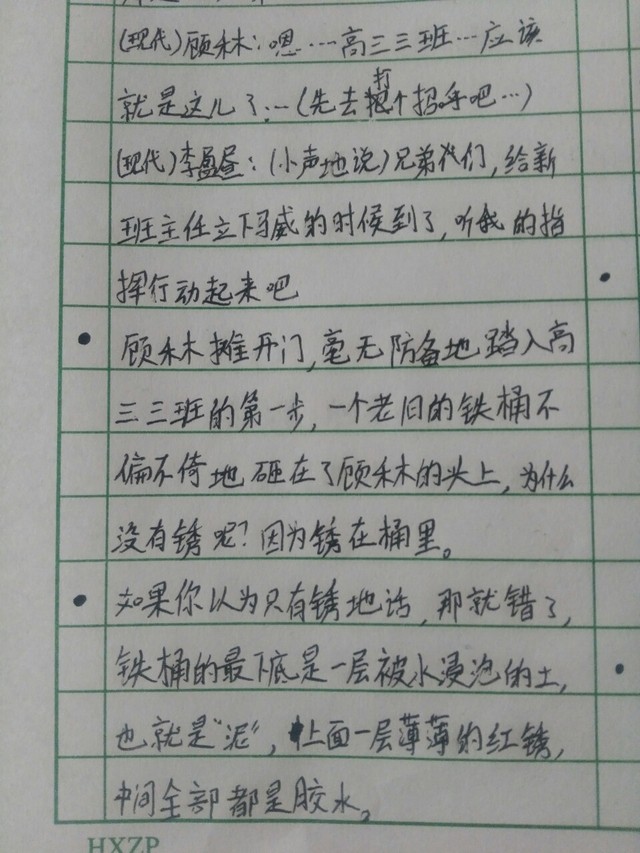 (现代)顾禾木：嗯…高三三班…应该
就是这儿了…(先去打个招呼吧…)
(现代)李盈昼：(小声地说)兄弟们，给新
班主任立下马威的时候到了，听我的指
挥行动起来吧
顾禾木推开门，毫无防备地踏入高
三三班的第一步，一个老旧的铁桶不
偏不倚地砸在了顾禾木的头上，为什么
没有锈呢？因为锈在桶里。
如果你以为只有锈地话，那就错了，
铁桶的最下底是一层被水浸泡的土，
也就是“泥”，上面一层薄薄的红锈，
中间全部都是胶水。
HXZP